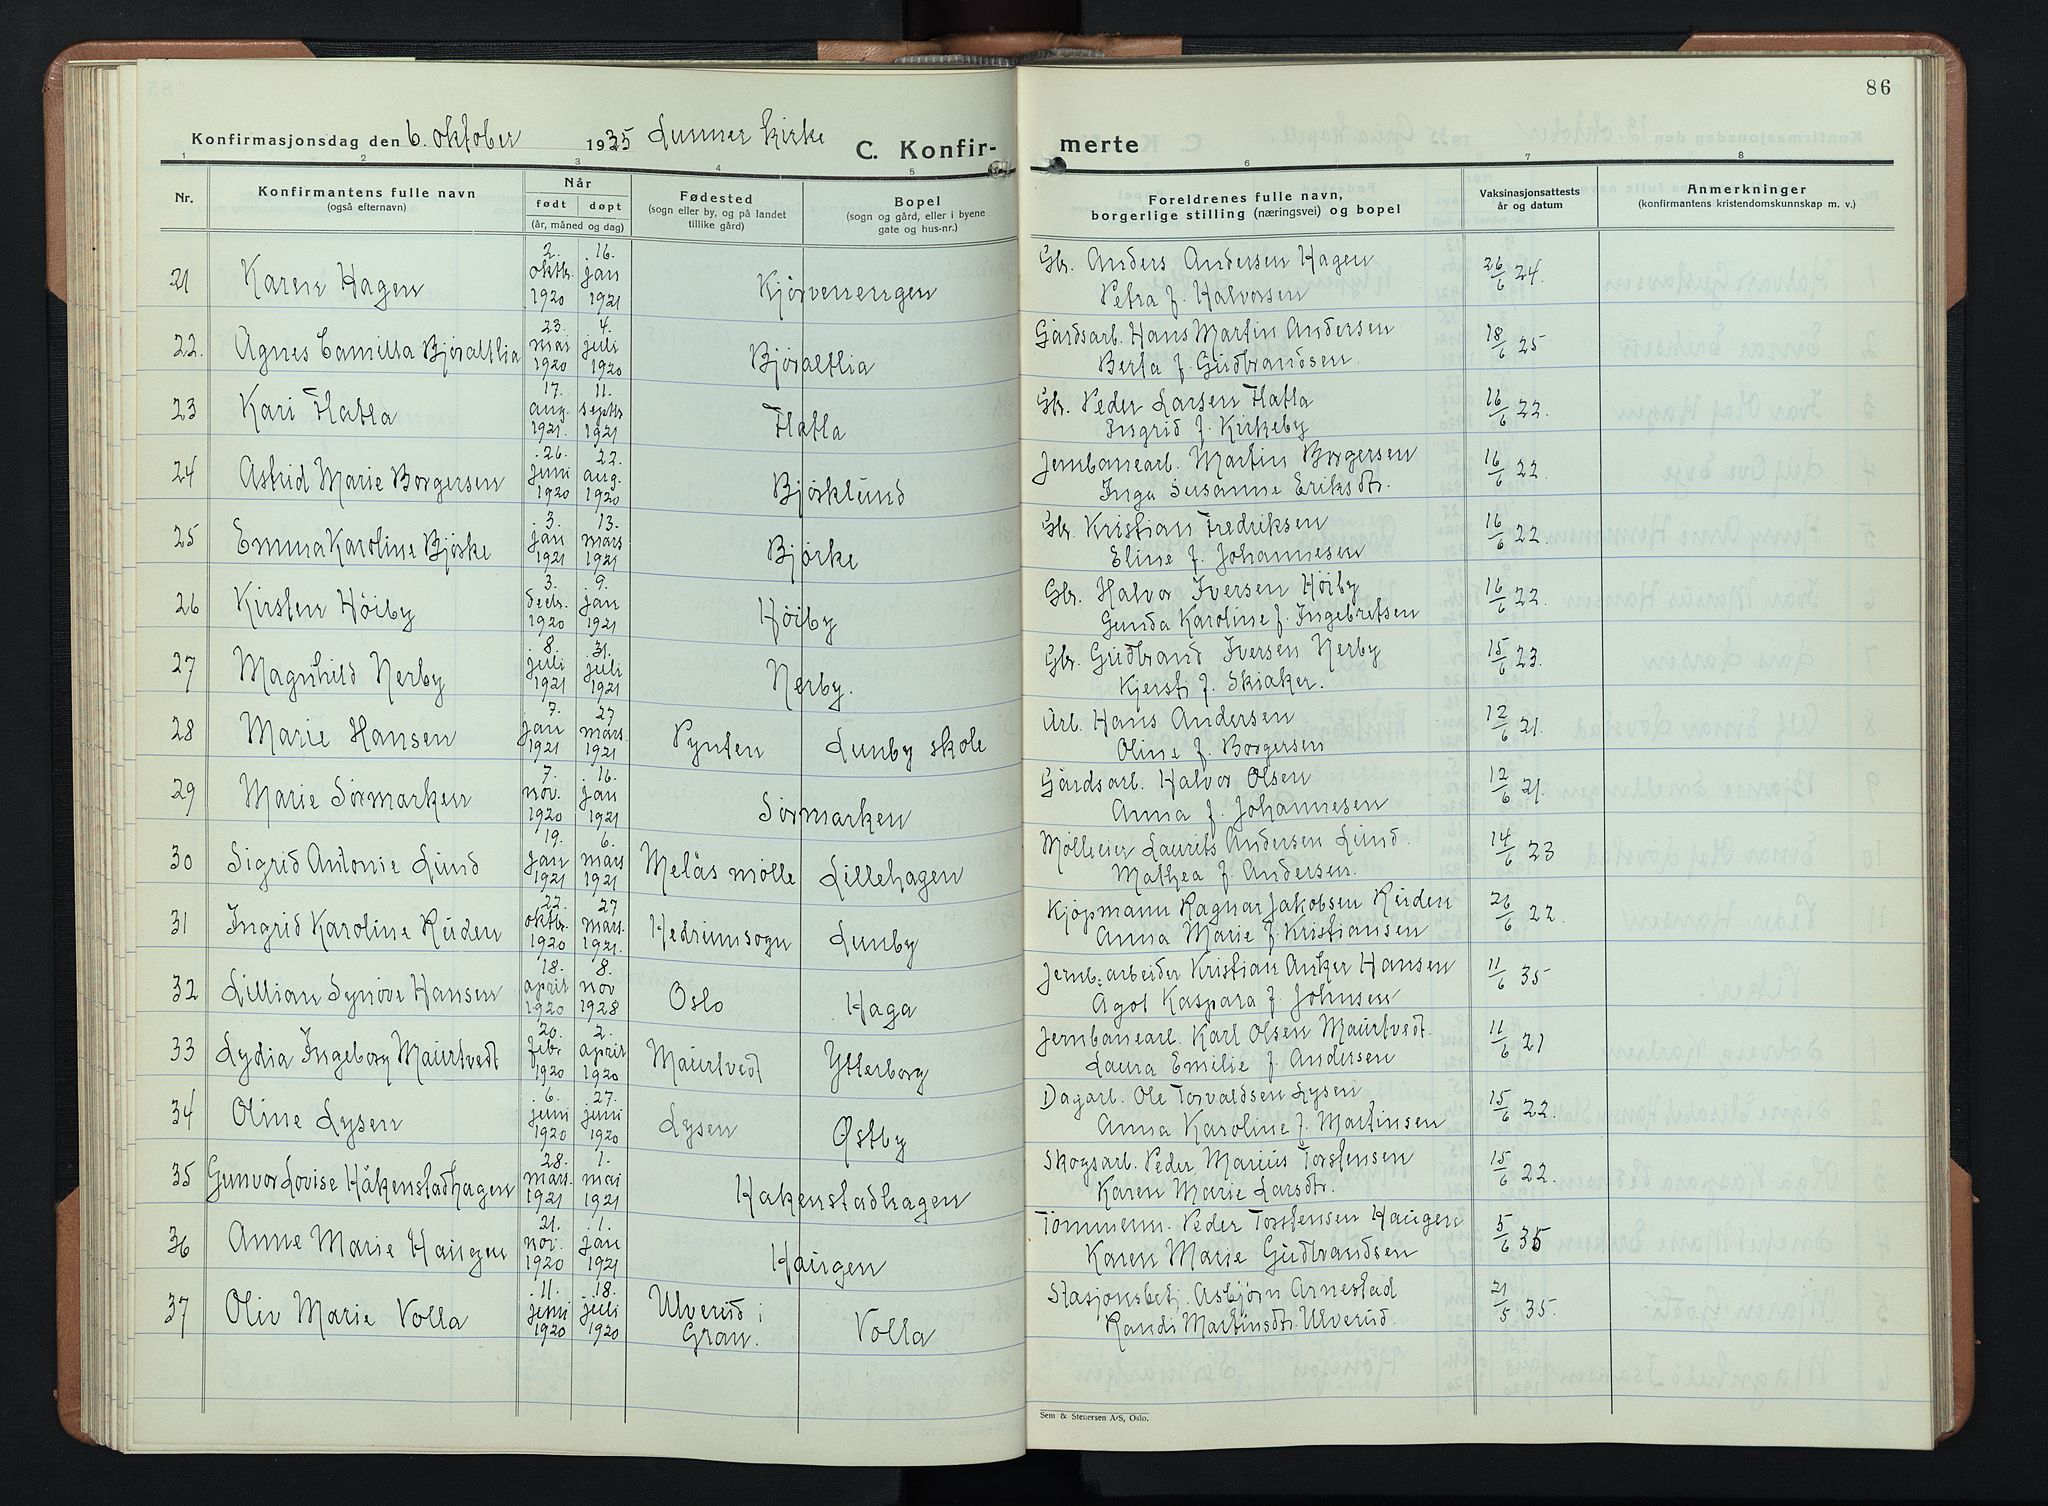 86
Konfirmasjonsdag den 6. oktober 1935 Lunner kirke C. Konfir- merte
1 2 3 4 5 6 7 8
Nr. Konfirmantens fulle navn (også efternavn) Når født døpt (år, måned og dag) Fødested (sogn eller by, og på landet tillike gård) Bopel (sogn og gård, eller i byene gate og hus-nr.) Foreldrenes fulle navn, borgerlige stilling (næringsvei) og bopel Vaksinasjonsattests år og datum Anmerkninger (konfirmantens kristendomskunnskap m. v.)
21 Karen Hagen 2. oktbr. 1920 16. jan 1921 Kjørvenengen Gbr. Anders Andersen Hagen 26/6 24.
Petra f. Halvorsen
22. Agnes Camilla Bjøraltlia 23. mai 1920 4. juli 1920 Bjøraltlia Gårdsarb. Hans Martin Andersen 18/6 25
Berta f. Gudbrandsen.
23 Kari Flatla 17. aug. 1921. 11. septbr. 1921 Flatla Gbr. Peder Larsen Flatla 16/6 22.
Ingrid f. Kirkeby
24 Astrid Marie Borgersen 26. juni 1920 22. aug. 1920 Bjørklund Jernbanearb. Martin Borgersen 16/6 22.
Inga Susanne Eriksdtr.
25 Emma Karoline Bjørke 3. jan 1921 13. mars 1921 Bjørke Gbr. Kristian Fredriksen 16/6 22.
Eline f. Johannesen
26 Kirsten Höiby 3. decbr. 1920 9. jan 1921 Höiby Gbr. Halvor Iversen Höiby 16/6 22.
Gunda Karoline f. Ingebretsen
27 Magnhild Nerby 8. juli 1921 31. juli 1921 Nerby. Gbr. Gudbrand Iversen Nerby 15/6 23.
Kjersti f. Skiaker.
28 Marie Hansen 7. jan 1921 27 mars. 1921 Pynten Lunby skole Arb. Hans Andersen 12/6 21.
Oline f. Borgersen
29 Marie Sörmarken 7. nov. 1920 16. jan 1921 Sörmarken Gårdsarb. Halvor Olsen 12/6 21.
Anna f. Johannesen
30 Sigrid Antonie Lund 19. jan 1921 6. mars 1921 Melås mölle Lillehagen Mölleier Laurits Andersen Lund. 14/6 23
Mathea f. Andersen.
31 Ingrid Karoline Ruden 22. oktbr. 1920 27 mars. 1921. Hedrumsogn Lunby Kjöpmann Ragnar Jakobsen Ruden 26/6 22.
Anna Marie f. Kristiansen
32 Lillian Synöve Hansen 18. april 1920 8. nov 1928 Oslo Haga Jernb. arbeider Kristian Anker Hansen 11/6 35
Agot Kaspara f. Johnsen
33 Lydia Ingeborg Maurtvedt 20. feb. 1920 2. april 1920 Maurtvedt Ytterborg Jernbanearb. Karl Olsen Maurtvedt. 11/6 21
Laura Emilie f. Andersen
34 Oline Lysen 6. juni 1920 27. juni 1920 Lysen Østby Dagarb. Ole Torvaldsen Lysen 15/6 22.
Anna Karoline f. Martinsen
35 Gunvor Lovise Håkenstadhagen 28. mars. 1921 1. mai 1921 Hakenstadhagen Skogsarb. Peder Marius Torstensen 15/6 22.
Karen Marie Larsdtr.
36 Anne Marie Haugen 21. nov. 1920 1. jan 1921 Haugen Tömmerm. Peder Torstensen Haugen 5/6 35
Karen Marie Gudbrandsen
37 Oliv Marie Volla 11. juni 1920 18. juli 1920 Ulverud i Gran. Volla Stasjonsbetj. Asbjörn Arnestad 21/5 35.
Randi Martinsdtr. Ulverud.
Sem & Stenersen A/S, Oslo.